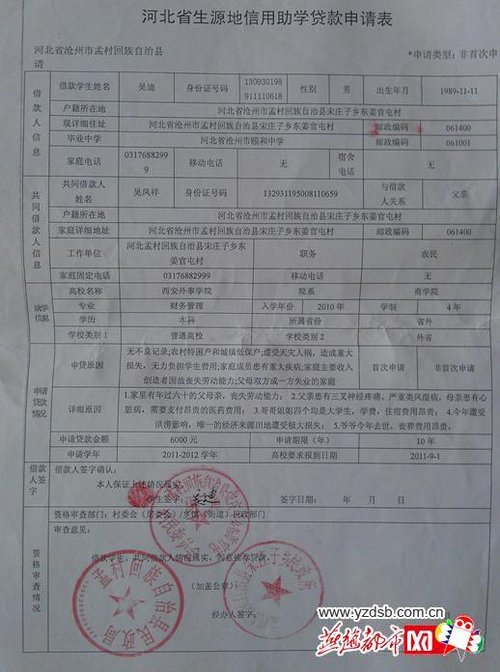 河北省生源地信用助学贷款申请表
河北省沧州市孟村回族自治县
*申请类型：非首次申
请
借款人信息
借款学生姓名 吴迪 身份证号码 130930198911110618 性别 男 出生年月 1989-11-11
户籍所在地 河北省沧州市孟村回族自治县宋庄子乡东姜官屯村
现详细住址 河北省沧州市孟村回族自治县宋庄子乡东姜官屯村 邮政编码 061400
毕业中学 河北省沧州市颐和中学 邮政编码 061001
家庭电话 03176882999 移动电话 无 宿舍电话 无
共同借款人信息
共同借款人姓名 吴凤祥 身份证号码 132931195008110659 与借款人关系 父亲
户籍所在地 河北省沧州市孟村回族自治县宋庄子乡东姜官屯村
家庭详细地址 河北省沧州市孟村回族自治县宋庄子乡东姜官屯村 邮政编码 061400
工作单位 河北孟村回族自治县宋庄子乡东姜官屯村 职务 农民
家庭固定电话 03176882999 移动电话 无
就学信息
高校名称 西安外事学院 院系 商学院
专业 财务管理 入学年份 2010年 学制 4年
学历 本科 所属省份 省外
学校类别1 普通高校 学校类别2 外省
申请贷款情况
申贷原因 无不良记录;农村特困户和城镇低保户;遭受天灾人祸，造成重大 首次申请 非首次申请
损失，无力负担学生费用;家庭成员患有重大疾病;家庭主要收入
创造者因故丧失劳动能力;父母双方或一方失业的家庭
详细原因 1.家里有年过六十的父母亲，丧失劳动能力；2.父亲患有三叉神经疼痛，严重类风湿病，母亲患有心
脏病，需要支付昂贵的医药费用；3.哥哥姐姐四个均是大学生，学费，住宿费用昂贵；4.今年遭受
洪涝影响，唯一的经济来源田地遭受极大损失；5.爷爷今年去世，丧葬费用昂贵。
申请贷款金额 6000元 申请期限（年） 10年
申请学年 2011-2012学年 高校要求报到日期 2011-9-1
借款人签字
借款人签字确认：
本人保证上述情况属实。
学生签字： 吴迪 签字日期： 年 月 日
资格审查情况
资格审查部门：村委会（居委会）/乡镇（街道）民政部门
审查意见：
借款学生、共同借款人情况属实，同意推荐贷款。
（加盖公章）
经办人签字：
孟村回族自治县民政局
www.yzdsb.com.cn
燕赵都市网